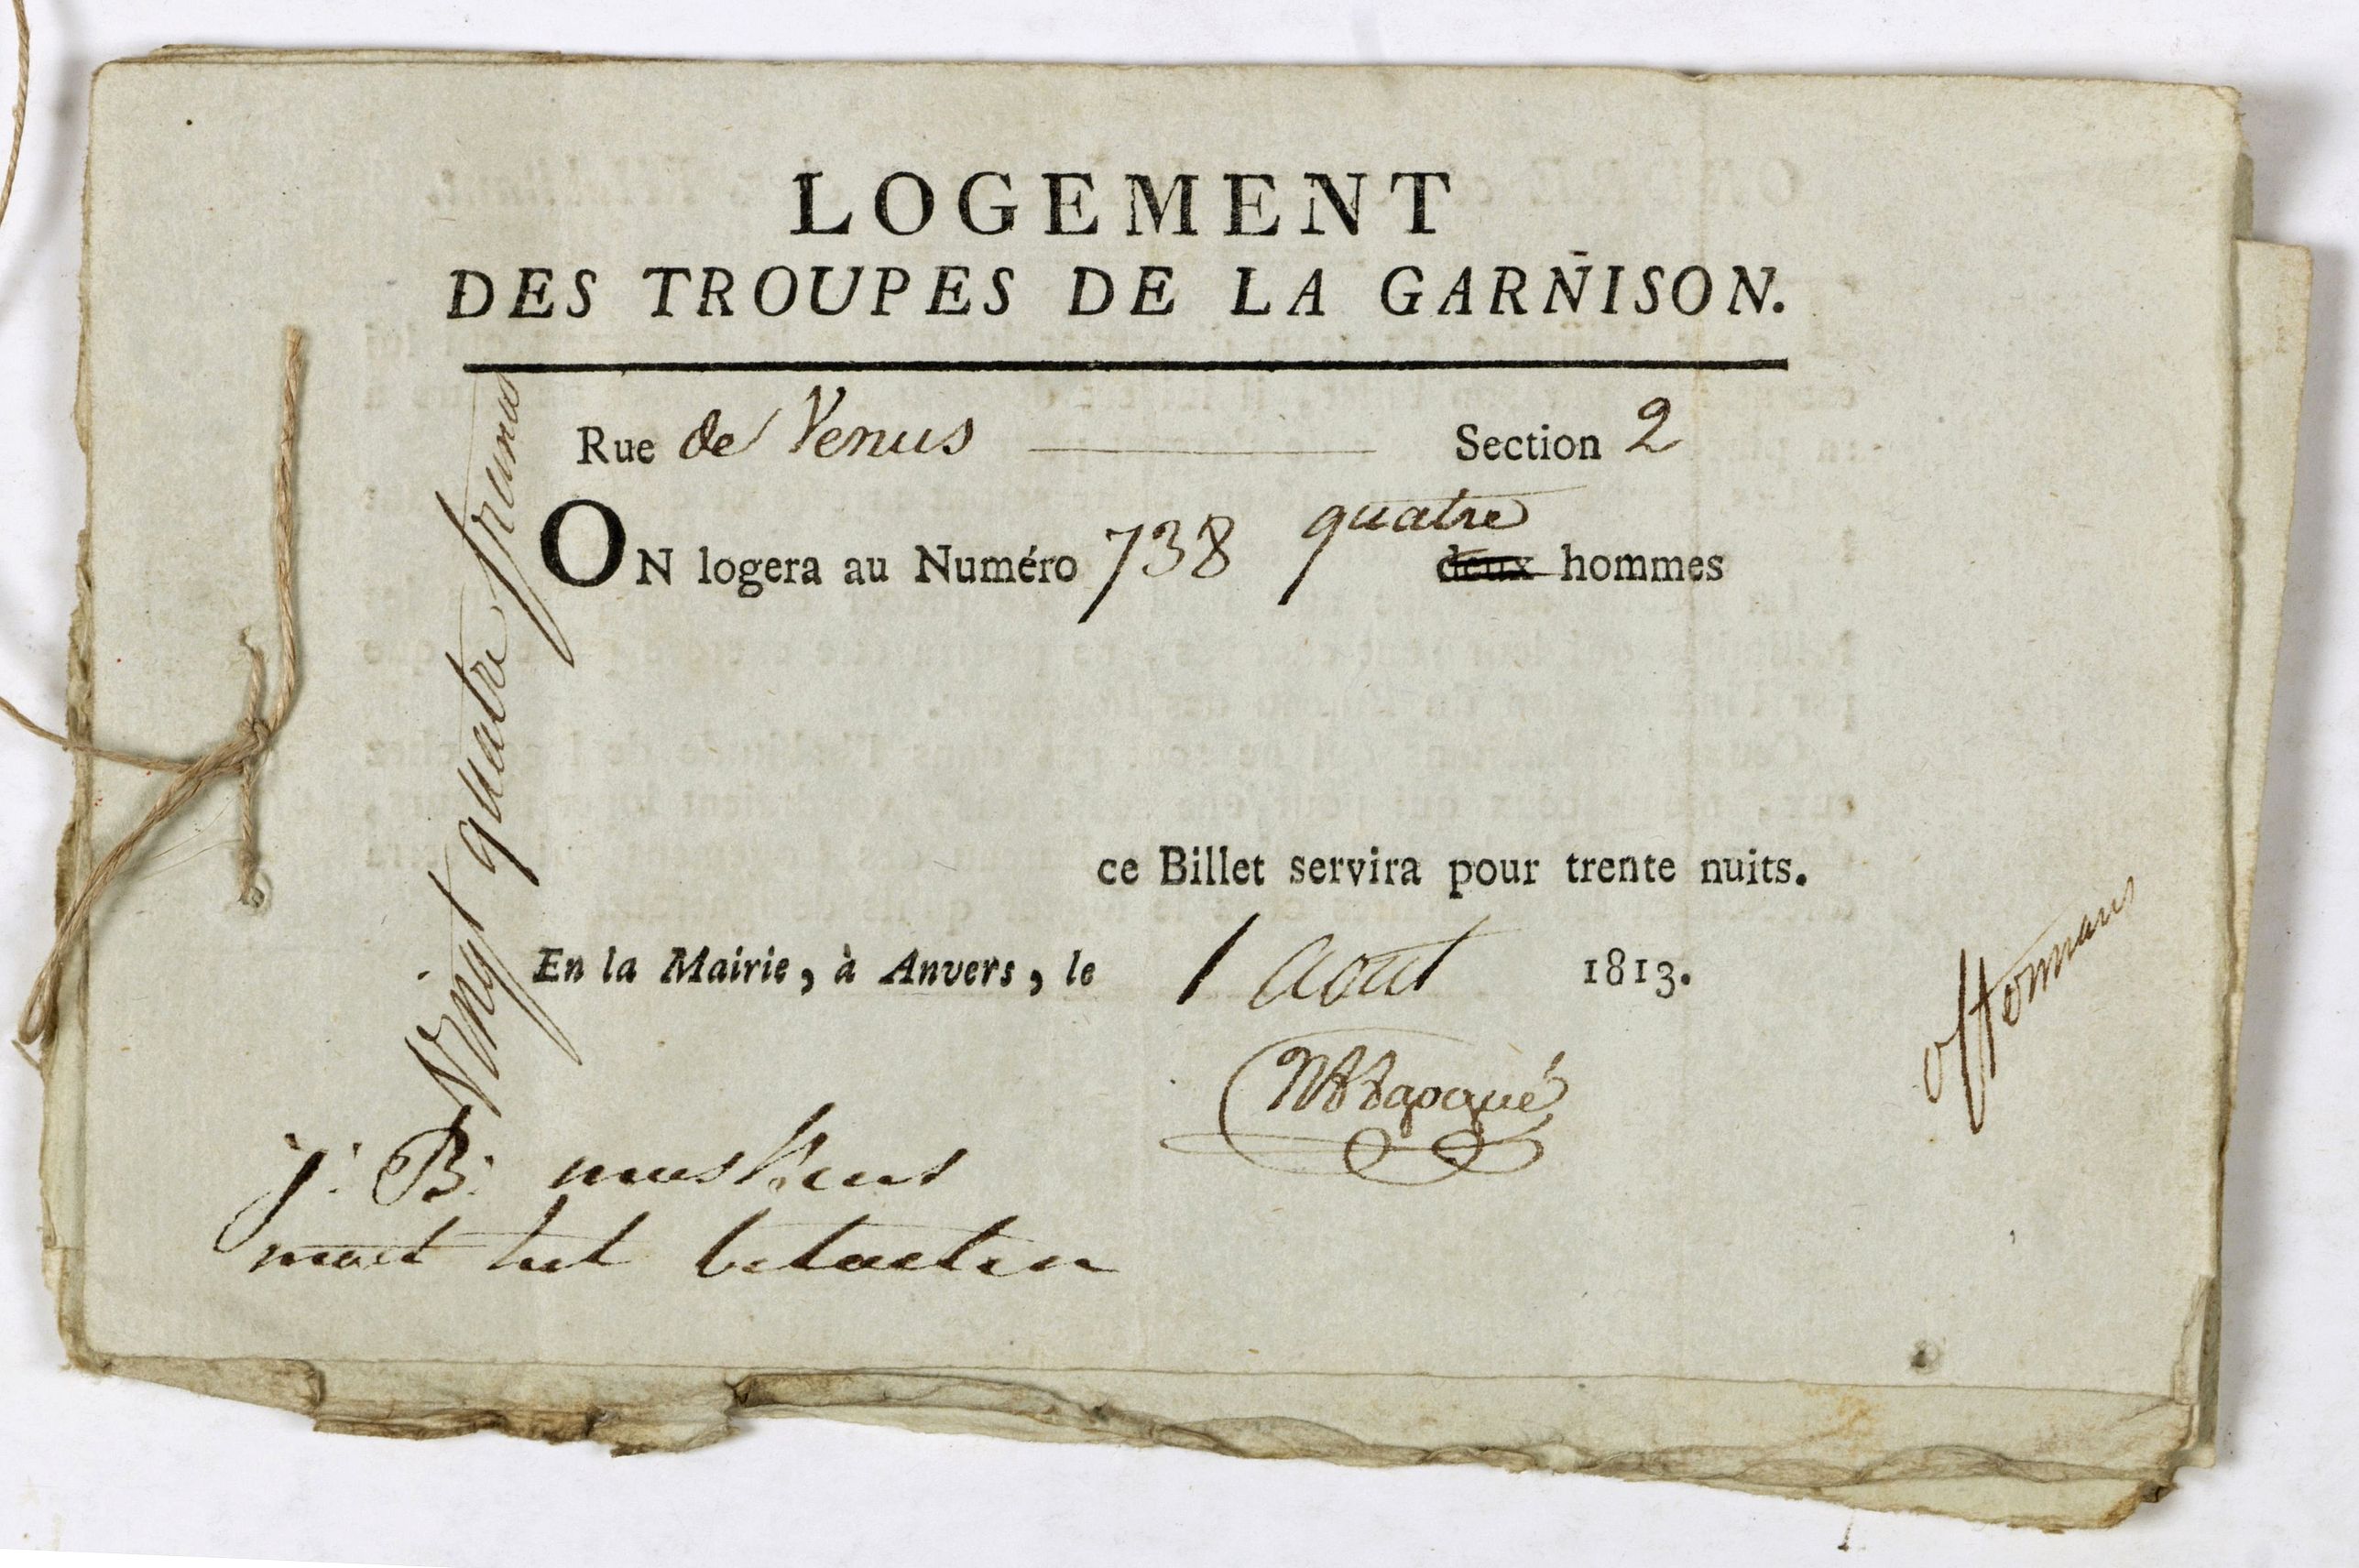 LOGEMENT
DES TROUPES DE LA GARNISON.
Rue de Venus Section 2
ON logera au Numéro 738 quatre deux hommes
ce Billet servira pour trente nuits.
En la Mairie, à Anvers, le 1 aout 1813.
j: B:
moet het betaelen
Vingt quatre francs